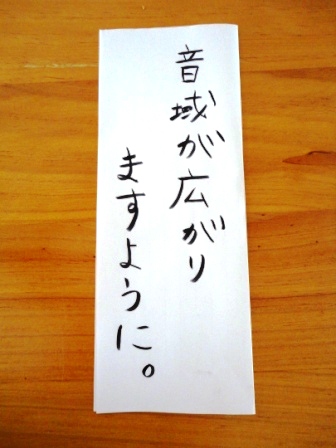 音域が広がり
ますように。